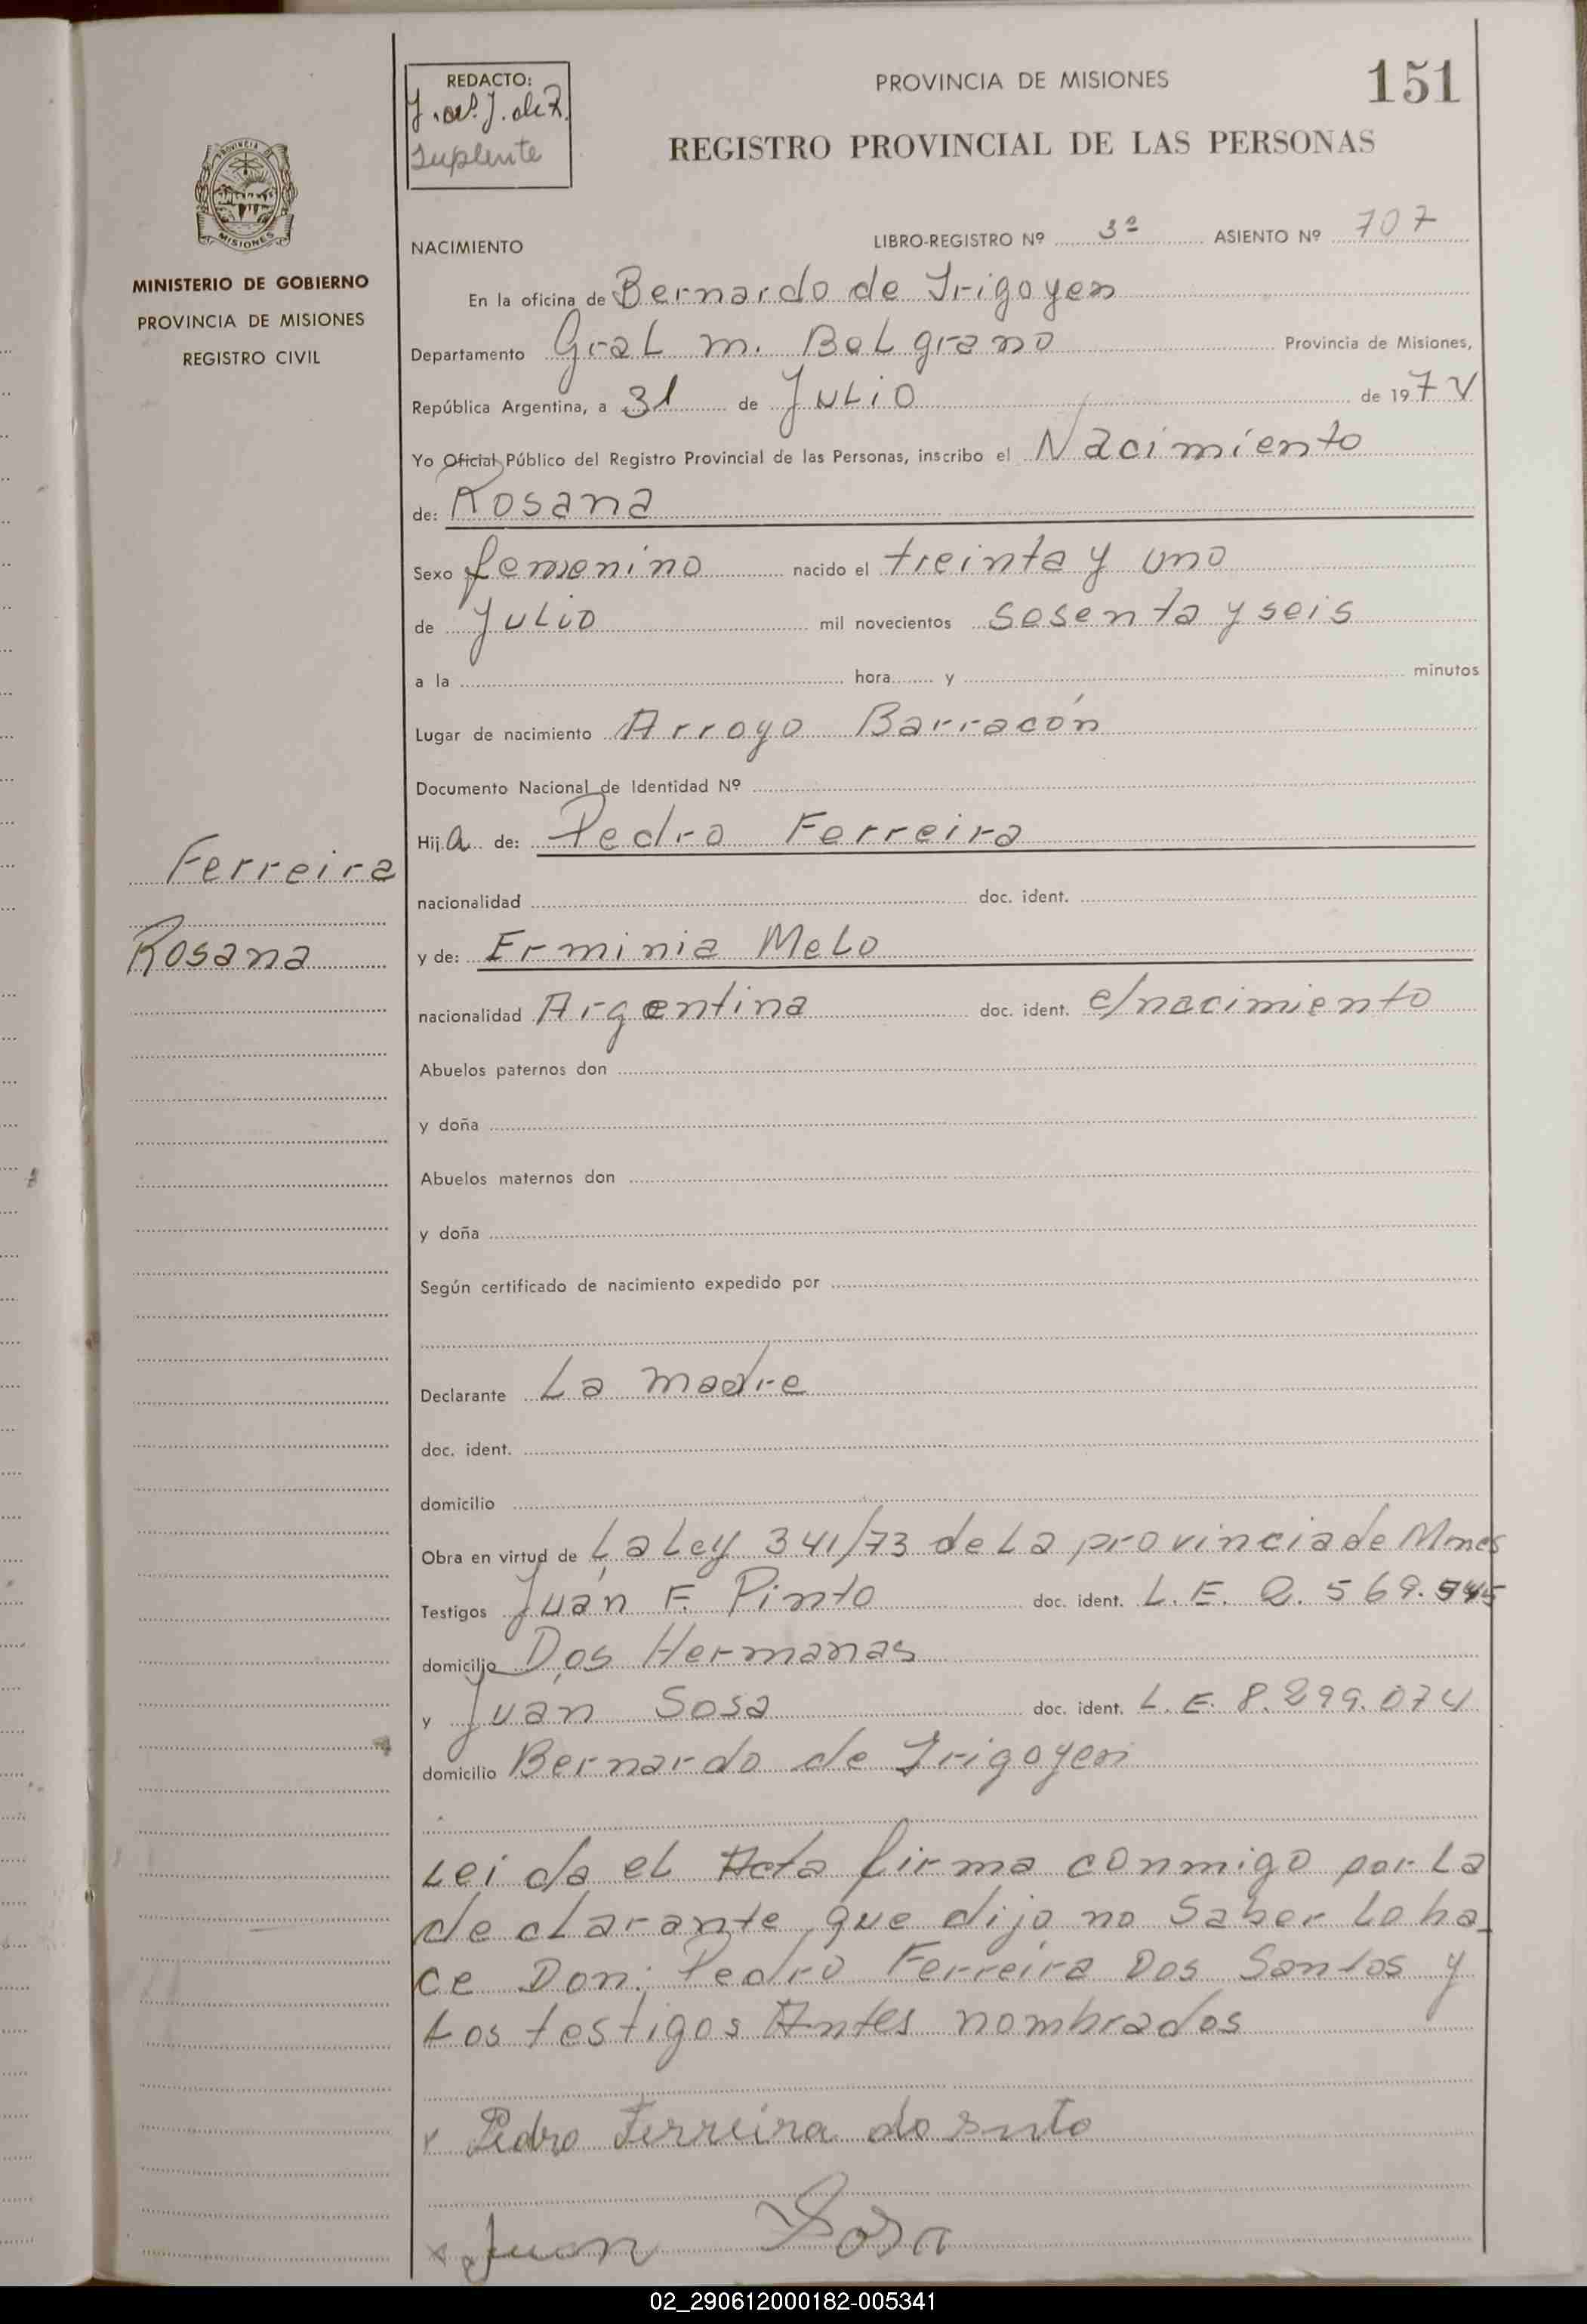 REDACTO:
Suplente
PROVINCIA DE MISIONES
151
REGISTRO PROVINCIAL DE LAS PERSONAS
PROVINCIA DE
MISIONES
MINISTERIO DE GOBIERNO
PROVINCIA DE MISIONES
REGISTRO CIVIL
NACIMIENTO
LIBRO-REGISTRO Nº 3º ASIENTO Nº 707
En la oficina de Bernardo de Irigoyen
Departamento Gral M. Belgrano Provincia de Misiones,
República Argentina, a 31 de Julio de 197
Yo Oficial Público del Registro Provincial de las Personas, inscribo el Nacimiento
de: Rosana
Sexo femenino nacido el treinta y uno
de Julio mil novecientos sesenta y seis
a la hora y minutos
Lugar de nacimiento Arroyo Barracón
Documento Nacional de Identidad Nº
Hija de: Pedro Ferreira
Ferreira
nacionalidad doc. ident.
Rosana
y de: Erminia Melo
nacionalidad Argentina doc. ident. c/nacimiento
Abuelos paternos don
y doña
Abuelos maternos don
y doña
Según certificado de nacimiento expedido por
Declarante La madre
doc. ident.
domicilio
Obra en virtud de La Ley 341/73 de La provincia de Mnes
Testigos Juan F. Pinto doc. ident. L.E. 569.
domicilio Dos Hermanas
y Juan Sosa doc. ident. L.E. 8.299.074
domicilio Bernardo de Irigoyen
Leida el Acta firma conmigo por La
declarante que dijo no Saber Lo ha_
ce Don: Pedro Ferreira Dos Santos y
Los testigos Antes nombrados
x Pedro Ferreira do
x Juan Sosa
02_290612000182-005341